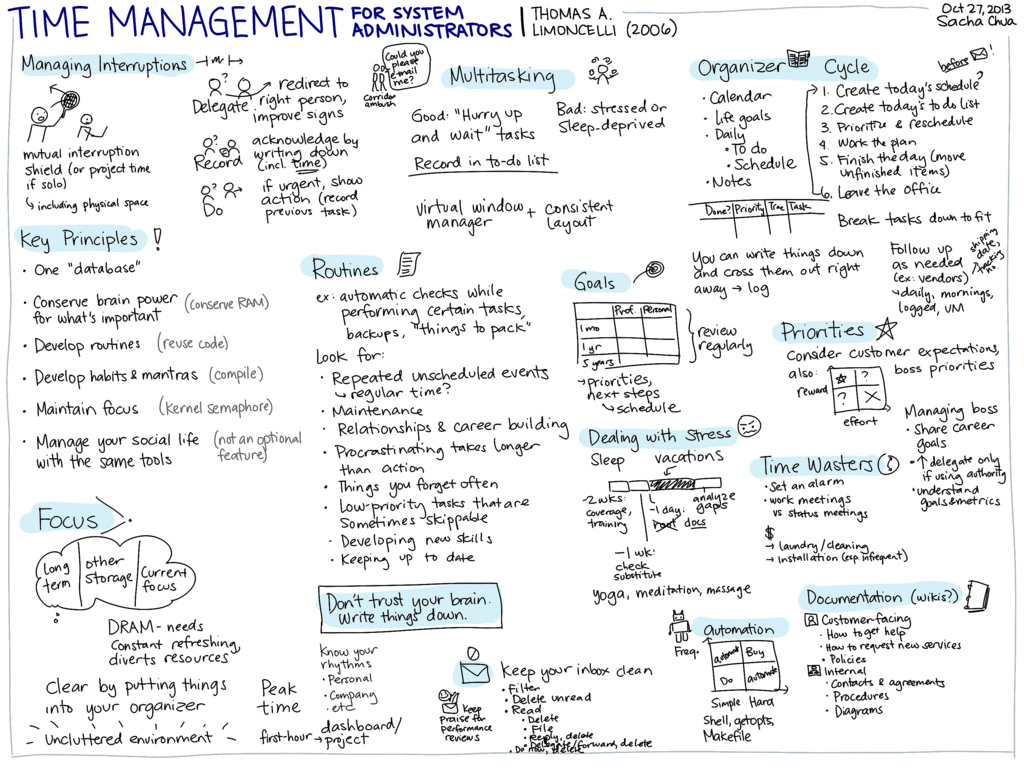 TIME MANAGEMENT FOR SYSTEM ADMINISTRATORS
THOMAS A. LIMONCELLI (2006)
Oct 27, 2013
Sacha Chua
Managing Interruptions
mutual interruption
shield (or project time
if solo)
↳ including physical space
Delegate → redirect to
right person,
improve signs
Record
acknowledge by
writing down
(incl. time)
Do
if urgent, show
action (record
previous task)
Corridor
ambush
Could you
please
e-mail
me?
Multitasking
Good: "Hurry up
and wait" tasks
Record in to-do list
Bad: stressed or
Sleep-deprived
virtual window
manager
+ consistent
layout
Organizer
• Calendar
• Life goals
• Daily
• To do
• Schedule
• Notes
Cycle
before
!
1. Create today's schedule
2. Create today's to do list
3. Prioritize & reschedule
4. Work the plan
5. Finish the day (move
unfinished items)
6. Leave the office
Done? Priority Time Task
Break tasks down to fit
You can write things down
and cross them out right
away → log
Follow up
as needed
(ex: vendors)
shipping
date,
tracking
no.
↳ daily, mornings,
logged, VM
Key Principles !
• One "database"
• Conserve brain power (conserve RAM)
for what's important
• Develop routines (reuse code)
• Develop habits & mantras (compile)
• Maintain focus (kernel semaphore)
• Manage your social life (not an optional
with the same tools feature)
Routines
ex: automatic checks while
performing certain tasks,
backups, "things to pack"
Look for:
• Repeated unscheduled events
↳ regular time?
• Maintenance
• Relationships & career building
• Procrastinating takes longer
than action
• Things you forget often
• Low-priority tasks that are
Sometimes skippable
• Developing new skills
• Keeping up to date
Goals
Prof. Personal
1 mo
1 yr
5 years
review
regularly
↳ priorities,
next steps
↳ schedule
Priorities
Consider customer expectations,
boss priorities
also:
reward
?
?
effort
Managing boss
• Share career
goals
• ↑ delegate only
if using authority
• understand
goals & metrics
Dealing with Stress
Sleep vacations
-2 wks:
coverage,
training
-1 wk:
check
substitute
-1 day:
docs
analyze
gaps
yoga, meditation, massage
Time Wasters
• Set an alarm
• work meetings
vs status meetings
$
→ laundry/cleaning
→ installation (esp. infrequent)
Focus
Long
term
other
storage
Current
focus
DRAM - needs
Constant refreshing,
diverts resources
Clear by putting things
into your organizer
Uncluttered environment
Peak
time
first-hour → dashboard/
project
Don't trust your brain.
Write things down.
Know your
rhythms
• Personal
• Company
• etc
Keep
Praise for
performance
reviews
Keep your inbox clean
• Filter
• Delete unread
• Read
• Delete
• File
• Reply, delete
• Delegate/forward, delete
• Do now, delete
automation
Freq.
automate Buy
Do automate
Simple Hard
Shell, getopts,
Makefile
Documentation (wikis?)
Costomer-facing
• How to get help
• How to request new services
• Policies
Internal
• Contacts & agreements
• Procedures
• Diagrams